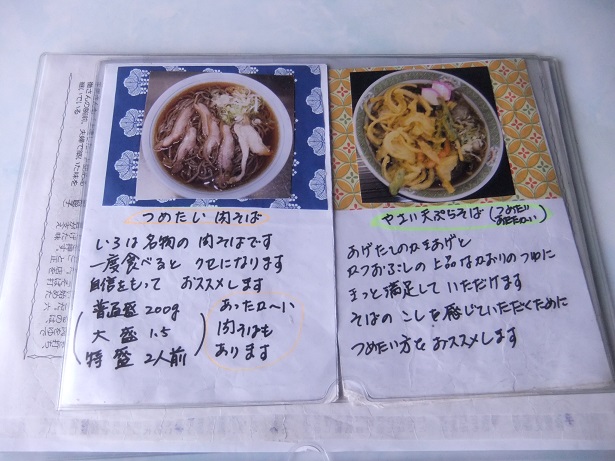 つめたい 肉そば
いろは名物の肉そばです
一度食べると クセになります
自信をもって おススメします
普通盛 200g
大盛 1.5
特盛 2人前
あったか〜い
肉そばも
あります
やさい天ぷらそば(つめたい
あたたか〜い)
あげたてのかきあげと
かつおぶしの上品なかおりのつゆに
きっと満足していただけます
そばのこしを感じていただくために
つめたい方をおススメします